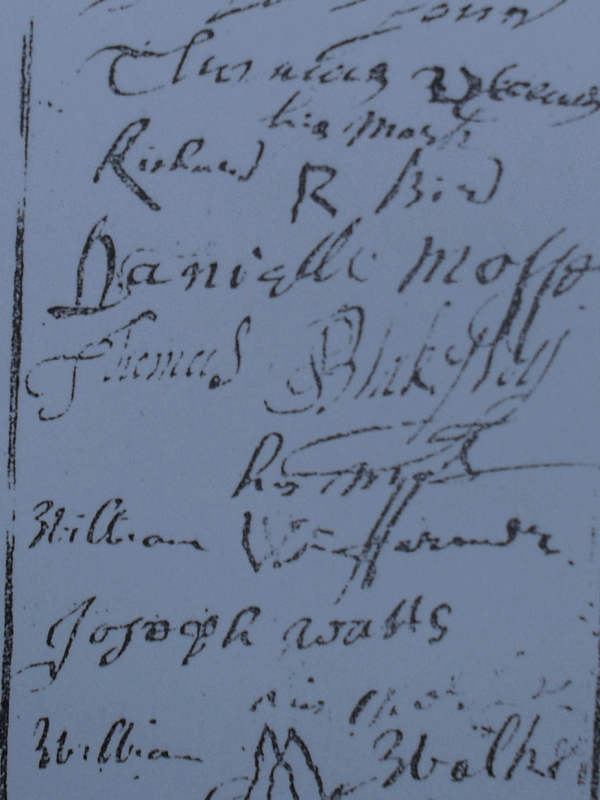 Thomas
his mark
Richard R Bird
Danielle Moss
Thomas Blakesley
his mark
William
Joseph Watts
his mark
William M